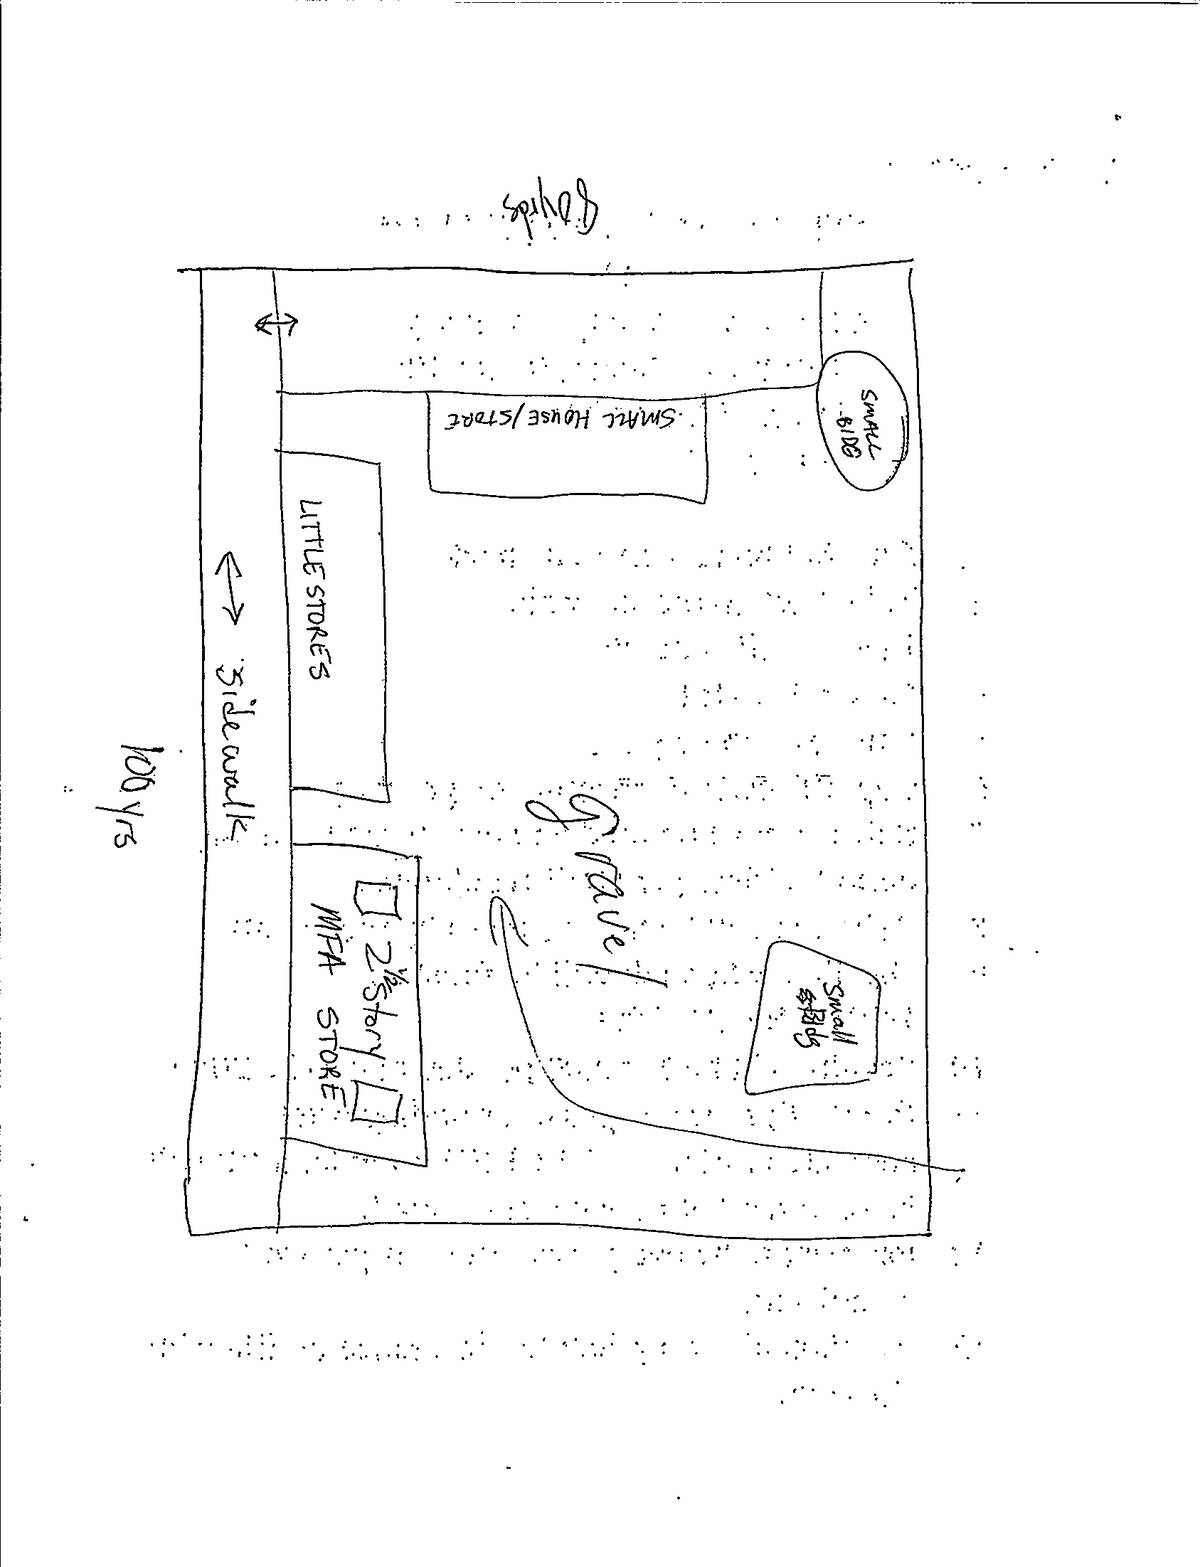 80 yrds
SMALL
BLDG
SMALL HOUSE/STORE
LITTLE STORES
Sidewalk
100 yrs
Gravel
2 1/2 Story
MFA STORE
Small
Bldg